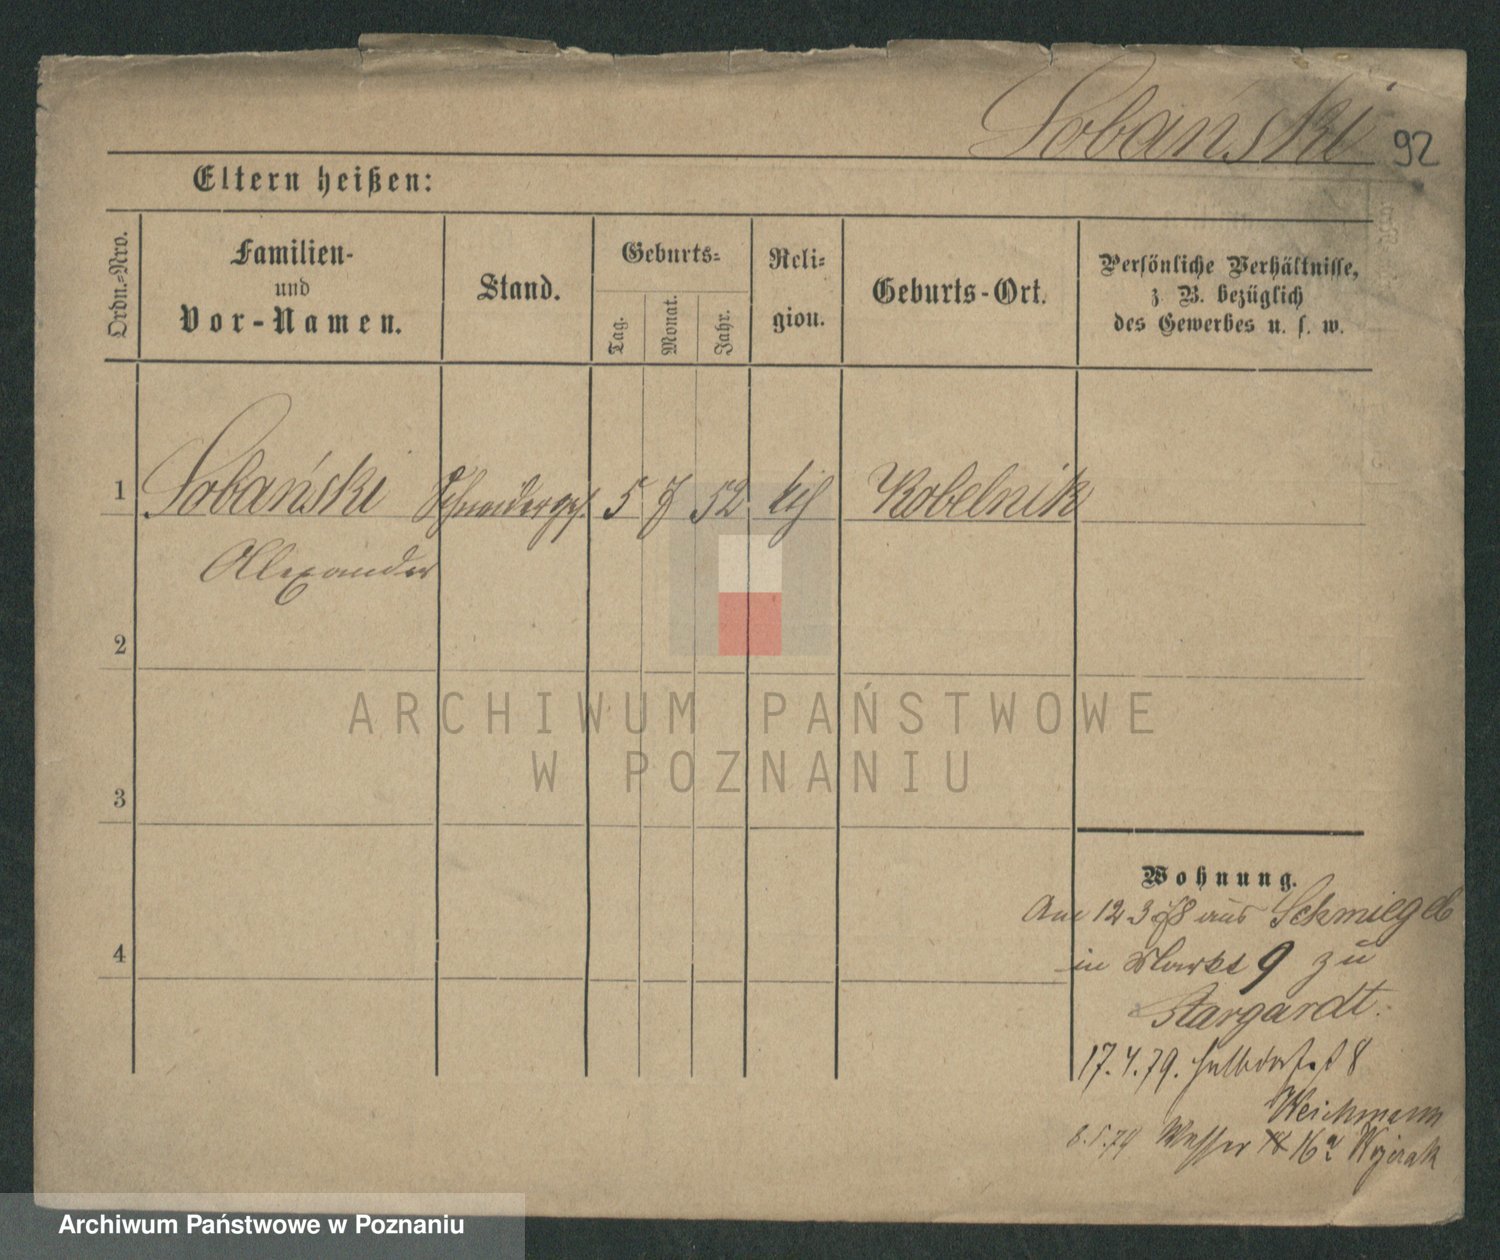 Sobański 92
Eltern heißen:
Ordn.-Nro.
Familien-
und
Vor-Namen.
Stand.
Geburts-
Tag.
Monat.
Jahr.
Reli-
gion.
Geburts-Ort.
Persönliche Verhältnisse,
z B. bezüglich
des Gewerbes u. s. w.
1 Sobański Schneidergs. 5 7 52 kth Kobelnik
Alexander
2
3
4
Wohnung.
Am 12 3 78 aus Schmiegel
in Markt 9 zu
Stargardt.
17.4.79. Halbdorfst 8
Weichmann
8.5.79 Wasser 16a
ARCHIWUM PAŃSTWOWE
W POZNANIU
Archiwum Państwowe w Poznaniu